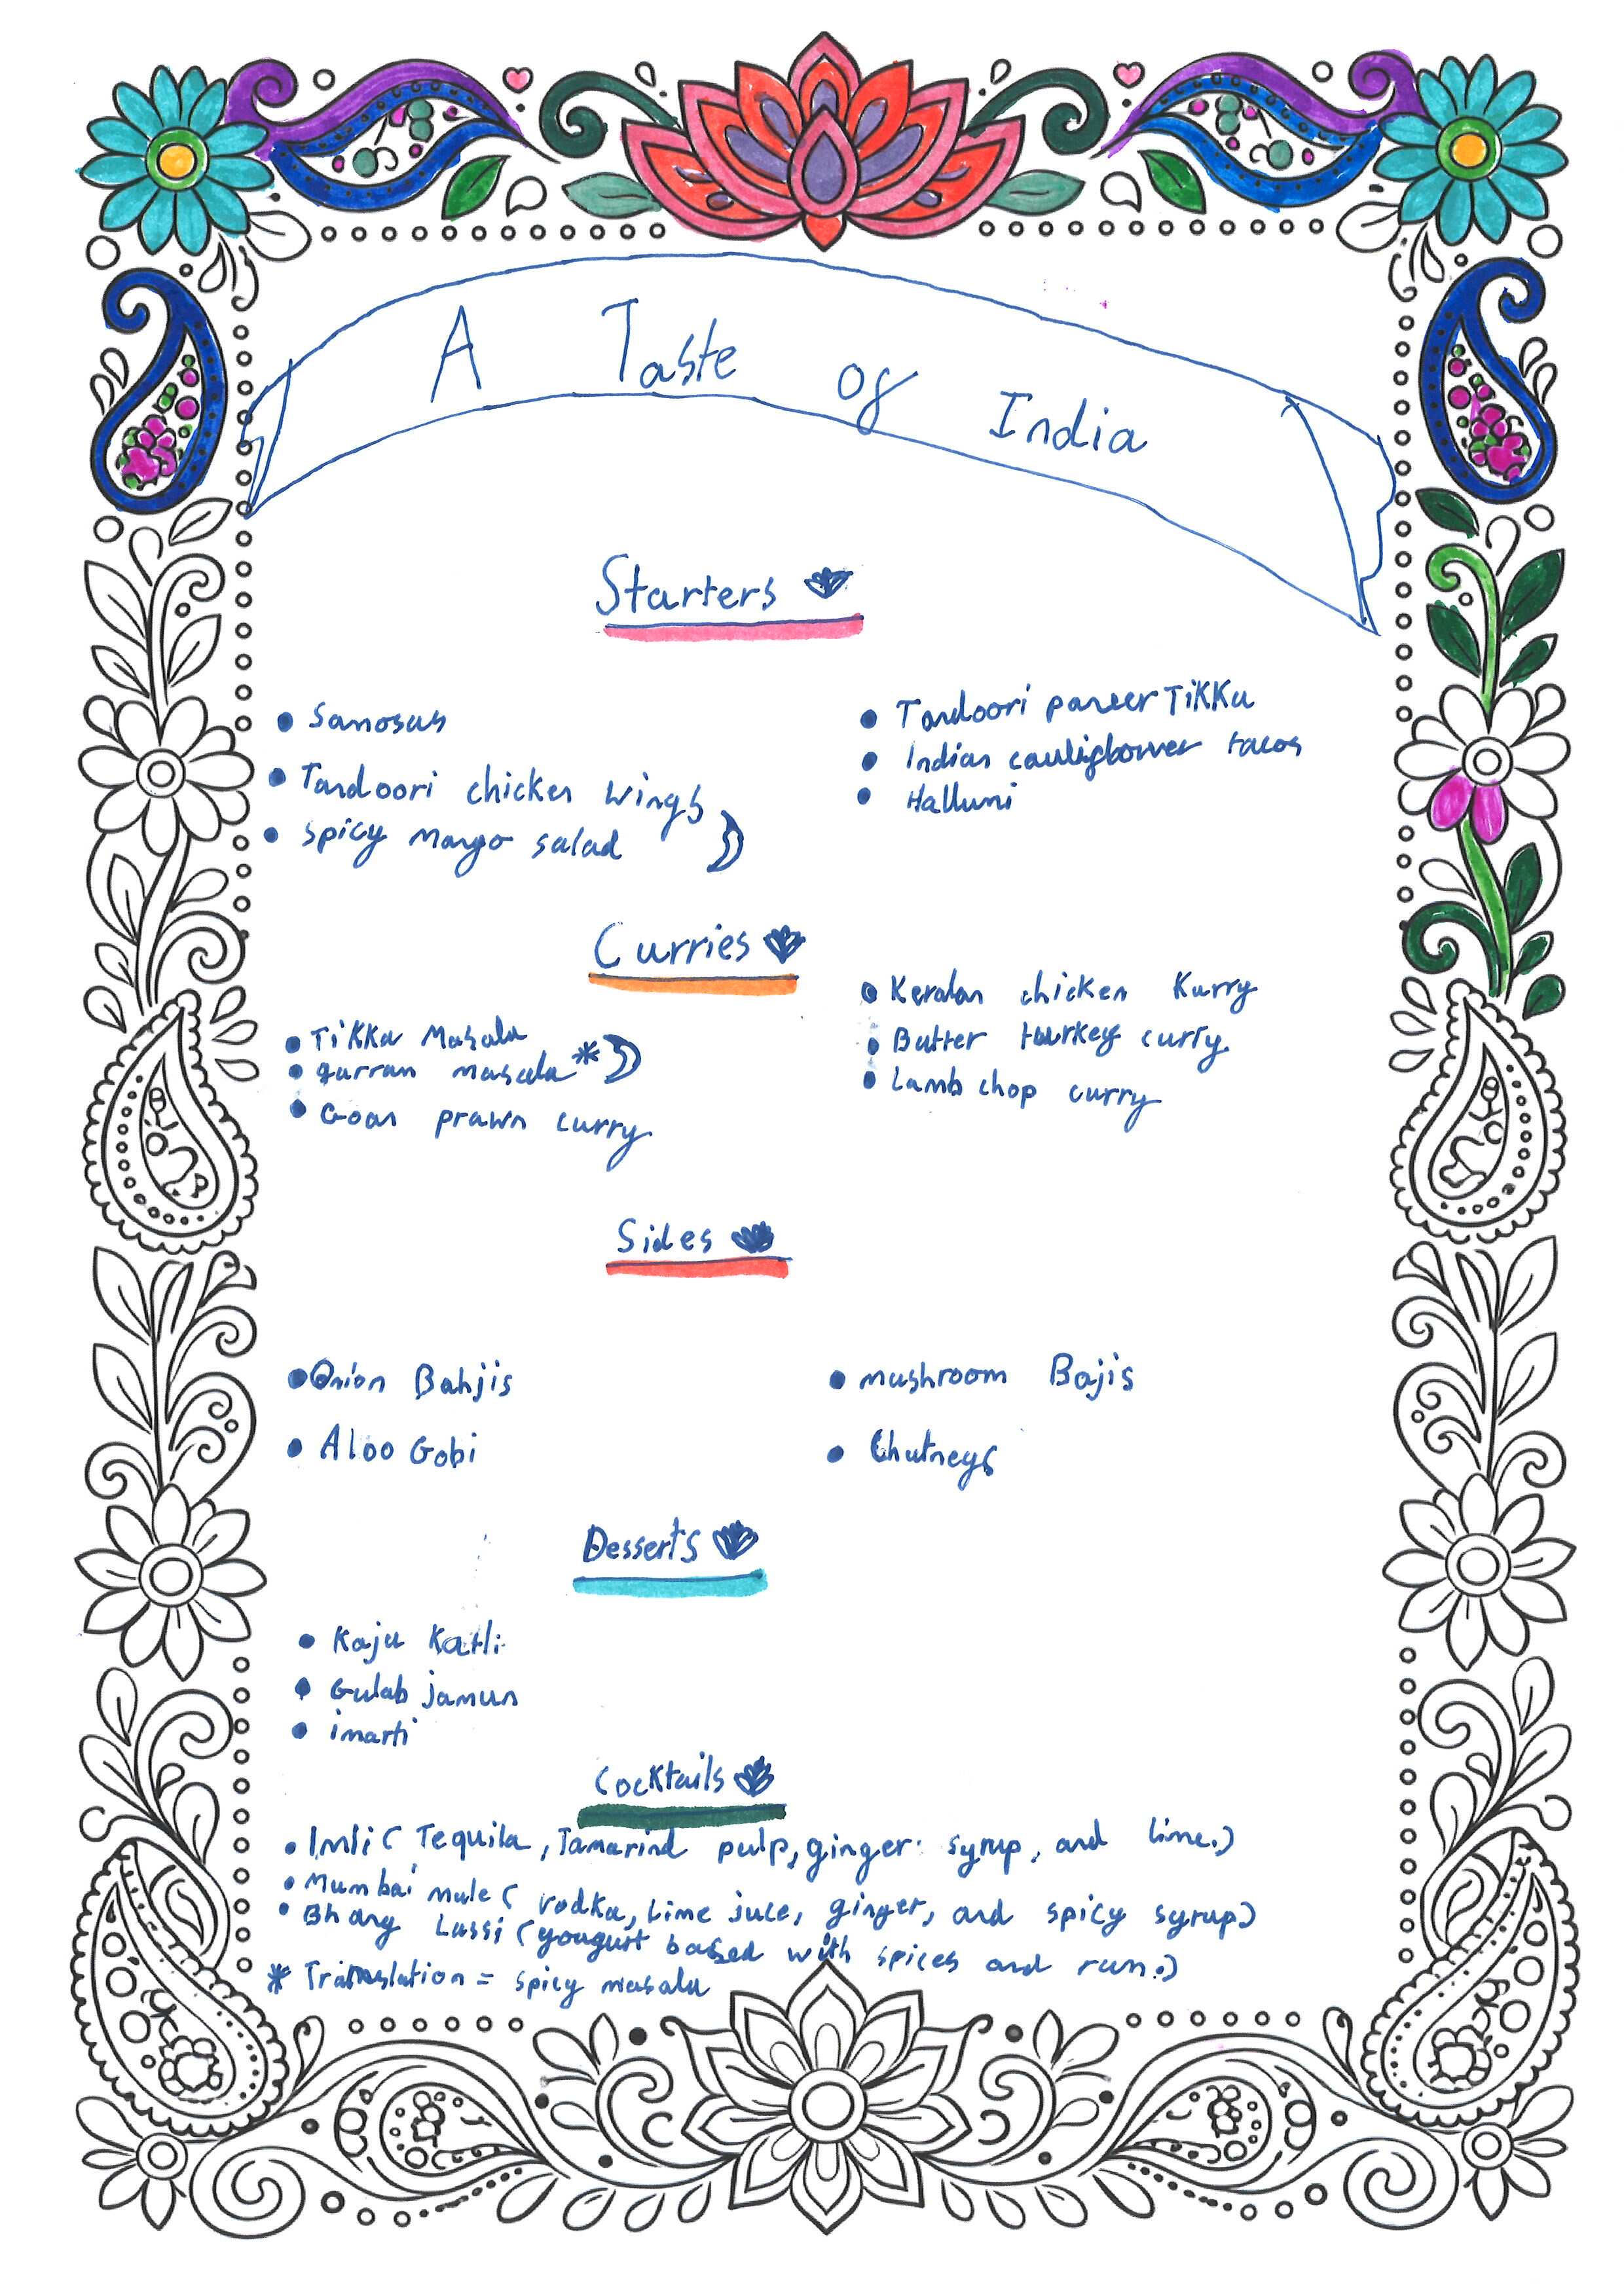 A Taste of India
Starters
Samosas
Tandoori chicken wings
spicy mango salad
Tandoori paneer TiKKa
Indian cauligflower tacos
Hallumi
Curries
TiKKa Masala
garram masala*
Goan prawn curry
Keralan chicken Kurry
Butter turkey curry
Lamb chop curry
Sides
Onion Bahjis
Aloo Gobi
mushroom Bajis
Chutneys
Desserts
Kaju Katli
Gulab jamun
imarti
Cocktails
Imli ( Tequila, Tamarind pulp, ginger syrup, and lime.)
Mumbai mule ( vodka, Lime juce, ginger, and spicy syrup)
Bhang Lassi (yougurt based with spices and rum.)
* Translation = spicy masala